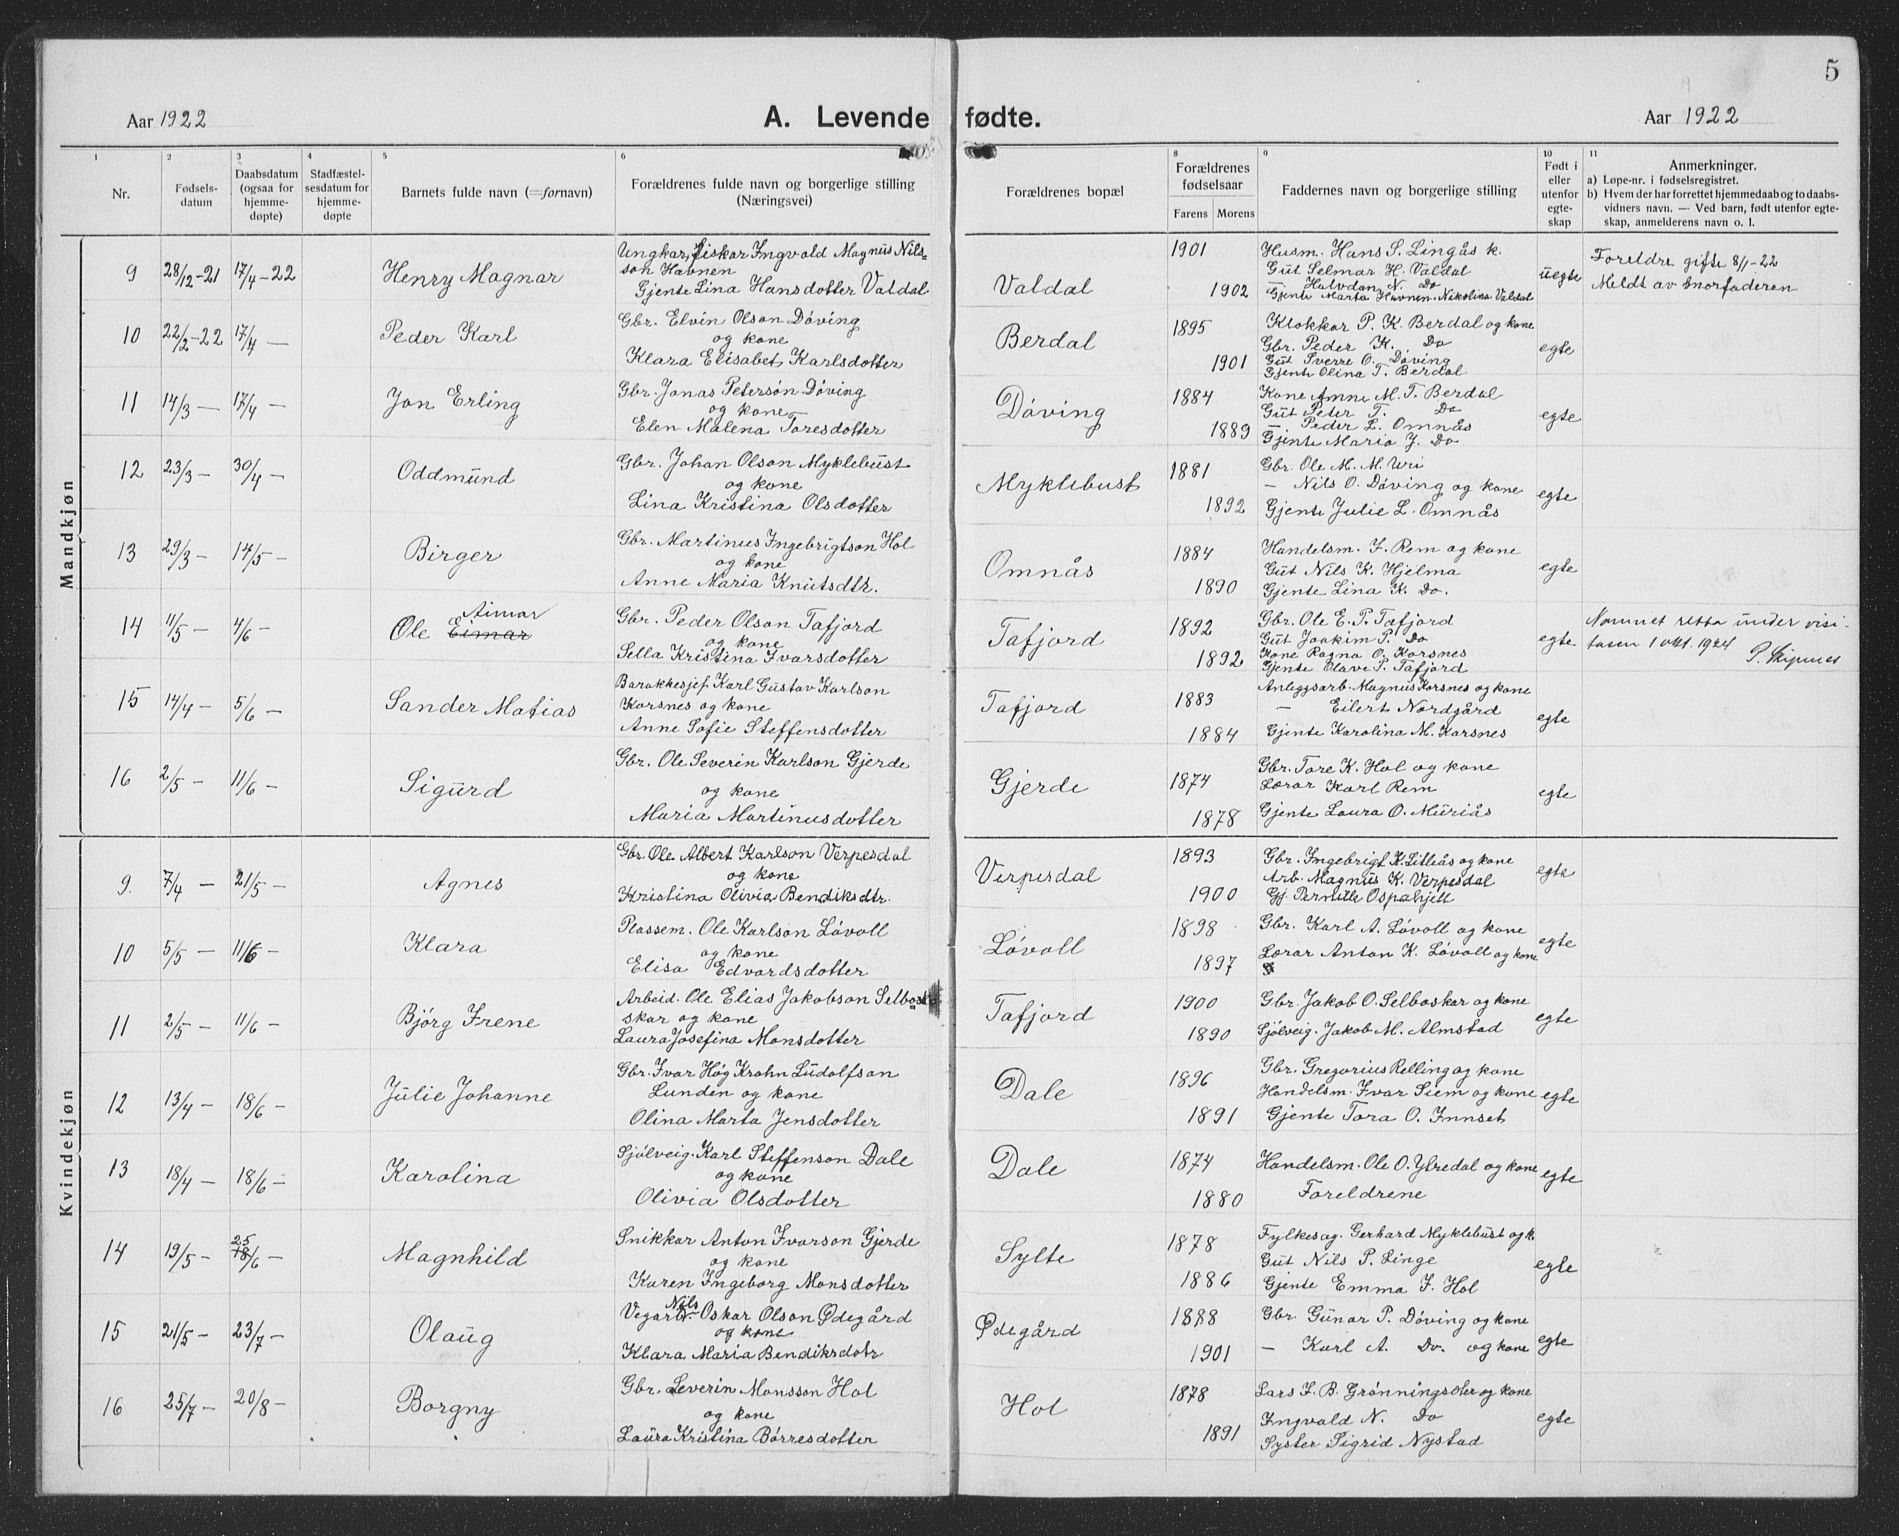 5
Aar 1922
A. Levende fødte.
Aar 1922
1 2 3 4 5 6 7 8 9 10 11
Nr.
Fødsels-
datum
Daabsdatum
(ogsaa for
hjemme-
døpte)
Stadfæstel-
sesdatum for
hjemme-
døpte
Barnets fulde navn (=fornavn)
Forældrenes fulde navn og borgerlige stilling
(Næringsvei)
Forældrenes bopæl
Forældrenes
fødselsaar
Farens Morens
Faddernes navn og borgerlige stilling
Født i
eller
utenfor
egte-
skap
Anmerkninger.
a) Løpe-nr. i fødselsregistret.
b) Hvem der har forrettet hjemmedaab og to daabs-
vidners navn. — Ved barn, født utenfor egte-
skap, anmelderens navn o. l.
Mandkjøn
9 28/12-21 17/4-22 Henry Magnar
Ungkar, fiskar Ingvald Magnus Nils-
son Havnen
Gjente Lina Hansdotter Valdal
Valdal 1901 1902
Husm. Hans S. Lingås k.
Gut Selmar H. Valdal
— Halvdan N. Do
Gjente Marta Havnen. Nikolina Valdal
uegte
Foreldre gifte 8/1-22
Meldt av morfaderen
10 22/2-22 17/4 — Peder Karl
Gbr. Elvin Olson Døving
og kone
Klara Elisabet Karlsdotter
Berdal 1895 1901
Klokkar P. K. Berdal og kone
Gbr. Peder K. Do
Gut Sverre O. Døving
Gjente Olina T. Berdal
egte
11 14/3 — 17/4 — Jon Erling
Gbr. Jonas Peterson Døving
og kone
Elen Malena Toresdotter
Døving 1884 1889
Kone Anne M. T. Berdal
Gut Peter T. Do
— Peder L. Omnås
Gjente Maria J. Do
egte
12 23/3 — 30/4 — Oddmund
Gbr. Johan Olson Myklebust
og kone
Lina Kristina Olsdotter
Myklebust 1881 1892
Gbr. Ole M. M. Uri
— Nils O. Døving og kone
Gjente Julie L. Omnås
egte
13 29/3 — 14/5 — Birger
Gbr. Martinus Ingebrigtson Hol
og kone
Anne Maria Knutsdtr.
Omnås 1884 1890
Handelsm. J. Rem og kone
Gut Nils K. Hjelma
Gjente Lina K. Do.
egte
14 11/5 — 4/6 — Ole Eimar Aimar
Gbr. Peder Olson Tafjord
og kone
Sella Kristina Ivarsdotter
Tafjord 1892 1892
Gbr. Ole E. P. Tafjord
Gut Joakim P. Do
Kone Ragna O. Korsnes
Gjente Olave P. Tafjord
egte
Namnet retta under visi-
tasen 1 okt. 1924
P. Skipnes
15 14/4 — 5/6 — Sander Matias
Barakkesjef Karl Gustav Karlson
Korsnes og kone
Anne Sofie Steffensdotter
Tafjord 1883 1884
Anleggsarb. Magnus Korsnes og kone
— Eilert Nordgård
Gjente Karolina M. Korsnes
egte
16 2/5 — 11/6 — Sigurd
Gbr. Ole Severin Karlson Gjerde
og kone
Maria Martinusdotter
Gjerde 1874 1878
Gbr. Tore K. Hol og kone
Lærar Karl Rem
Gjente Laura O. Muriås
egte
Kvindekjøn
9. 7/4 — 21/5 — Agnes
Gbr. Ole Albert Karlson Verpesdal
og kone
Kristina Olivia Bendiksdtr.
Verpesdal 1893 1900
Gbr. Ingebrigt K. Litleås og kone
Arb. Magnus K. Verpesdal
Gj. Pernille Ospahjell
egte
10 5/5 — 11/6 — Klara
Plassem. Ole Karlson Løvoll
og kone
Elisa Edvardsdotter
Løvoll 1898 1897
Gbr. Karl A. Løvoll og kone
Lærar Anton K. Løvoll og kone
egte
11 2/5 — 11/6 — Bjørg Irene
Arbeid. Ole Elias Jakobson Selbo
skar og kone
Laura Josefina Monsdotter
Tafjord 1900 1890
Gbr. Jakob O. Selboskar og kone
Sjølveig. Jakob M. Almstad
egte
12 13/4 — 18/6 — Julie Johanne
Gbr. Ivar Høg Krohn Ludolfson
Lunden og kone
Olina Marta Jensdotter
Dale 1896 1891
Gbr. Gregorius Relling og kone
Handelsm. Ivar Siem og kone
Gjente Tora O. Innset
egte
13 18/4 — 18/6 — Karolina
Sjølveig. Karl Steffenson Dale
og kone
Olivia Olsdotter
Dale 1874 1880
Handelsm. Ole O. Ytredal og kone
Foreldrene
egte
14 19/5 — 25 18/6 — Magnhild
Snikkar Anton Ivarson Gjerde
og kone
Karen Ingeborg Monsdotter
Sylte 1878 1886
Fylkesag. Gerhard Myklebust og k.
Gut Nils P. Linge
Gjente Emma J. Hol
egte
15 21/5 — 23/7 — Olaug
Vegarb. Nils Oskar Olson Ødegård
og kone
Klara Maria Bendiksdotr
Ødegård 1888 1901
Gbr. Gunar P. Døving og kone
— Karl A. Do. og kone
egte
16 25/7 — 20/8 — Borgny
Gbr. Severin Monsson Hol
og kone
Laura Kristina Børresdotter
Hol 1878 1891
Lars J. B. Grønningsæter og kone
Ingvald N. Do
Syster Sigrid Nystad
egte